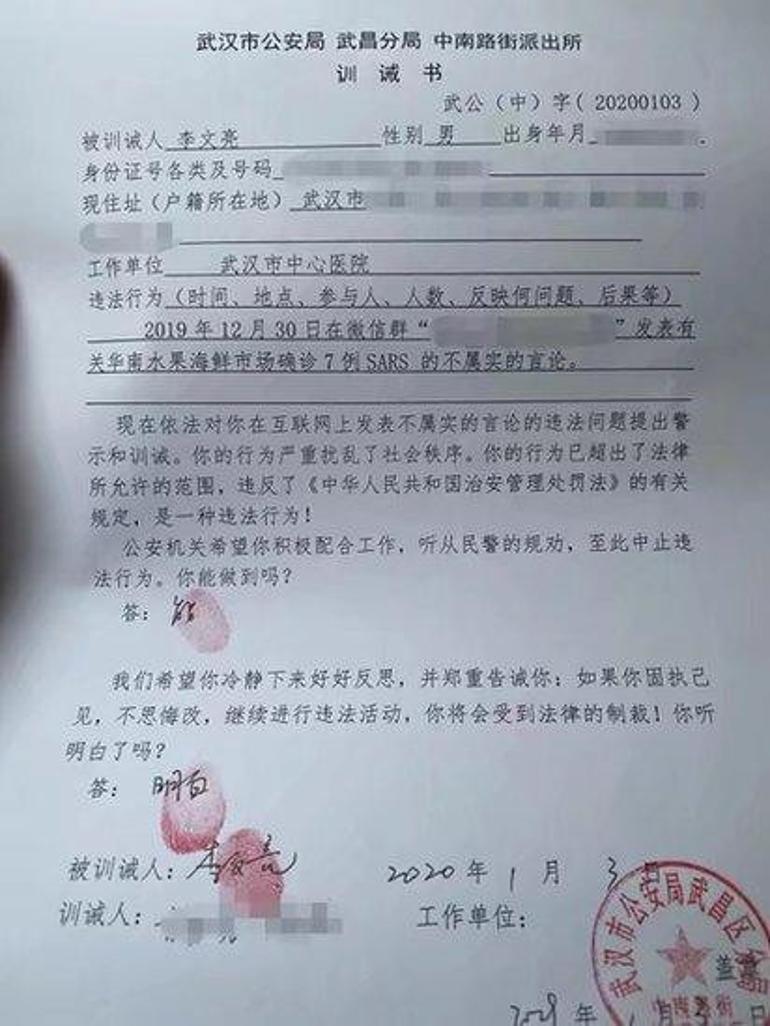 武汉市公安局 武昌分局 中南路街派出所
训 诫 书
武公（中）字( 20200103 )
被训诫人 李文亮 性别 男 出身年月
身份证号各类及号码
现住址（户籍所在地） 武汉市
工作单位 武汉市中心医院
违法行为（时间、地点、参与人、人数、反映何问题、后果等）
2019 年 12 月 30 日在微信群“ ”发表有
关华南水果海鲜市场确诊 7 例 SARS 的不属实的言论。
现在依法对你在互联网上发表不属实的言论的违法问题提出警
示和训诫。你的行为严重扰乱了社会秩序。你的行为已超出了法律
所允许的范围，违反了《中华人民共和国治安管理处罚法》的有关
规定，是一种违法行为！
公安机关希望你积极配合工作，听从民警的规劝，至此中止违
法行为。你能做到吗？
答： 能
我们希望你冷静下来好好反思，并郑重告诫你：如果你固执己
见，不思悔改，继续进行违法活动，你将会受到法律的制裁！你听
明白了吗？
答： 明白
被训诫人：李文亮 2020 年 1 月 3
训诫人： 工作单位：
武汉市公安局武昌区
中南路街
盖章
年 月 日